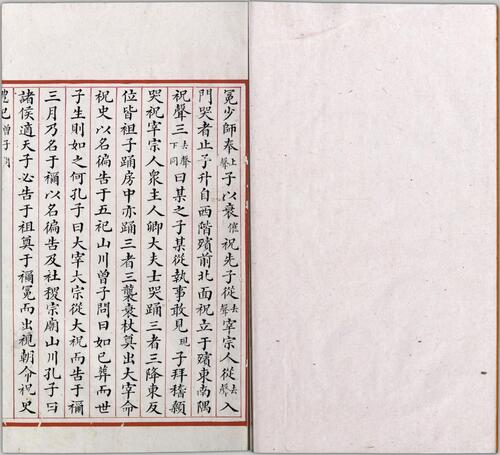 冕少師奉上聲子以衰催祝先子從去聲宰宗人從去聲入
門哭者止子升自西階殯前北面祝立于殯東南隅
祝聲三去聲下同曰某之子某從執事敢見現子拜稽顙
哭祝宰宗人衆主人卿大夫士哭踊三者三降東反
位皆袒子踊房中亦踊三者三襲衰杖奠出大宰命
祝史以名徧告于五祀山川曾子問曰如已葬而世
子生則如之何孔子曰大宰大宗從大祝而告于禰
三月乃名于禰以名徧告及社稷宗廟山川孔子曰
諸侯適天子必告于祖奠于禰冕而出視朝命祝史
禮記曾子問